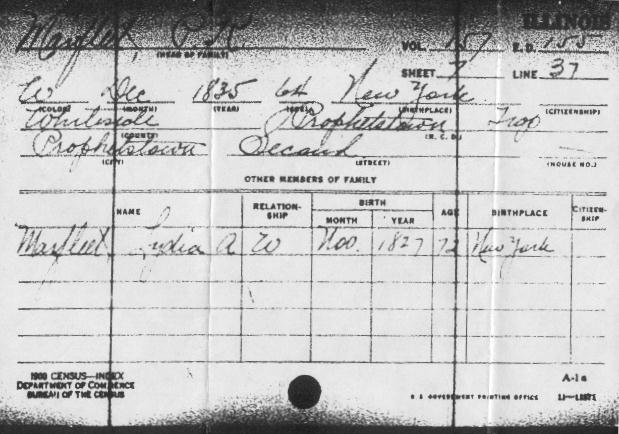 ILLINOIS
Mayfleet, P. R.
(HEAD OF FAMILY) VOL. 157 E.D. 155
SHEET 7 LINE 37
W Dec 1835 64 New York
(COLOR) (MONTH) (YEAR) (AGE) (BIRTHPLACE) (CITIZENSHIP)
Whiteside Prophetstown Twp
(COUNTY) (M. C. D.)
Prophetstown Second
(CITY) (STREET) (HOUSE NO.)
OTHER MEMBERS OF FAMILY
NAME RELATION-SHIP BIRTH MONTH YEAR AGE BIRTHPLACE CITIZEN-SHIP
Mayfleet, Lydia A W Nov. 1827 72 New York
1900 CENSUS—INDEX A-1a
DEPARTMENT OF COMMERCE
BUREAU OF THE CENSUS U S GOVERNMENT PRINTING OFFICE